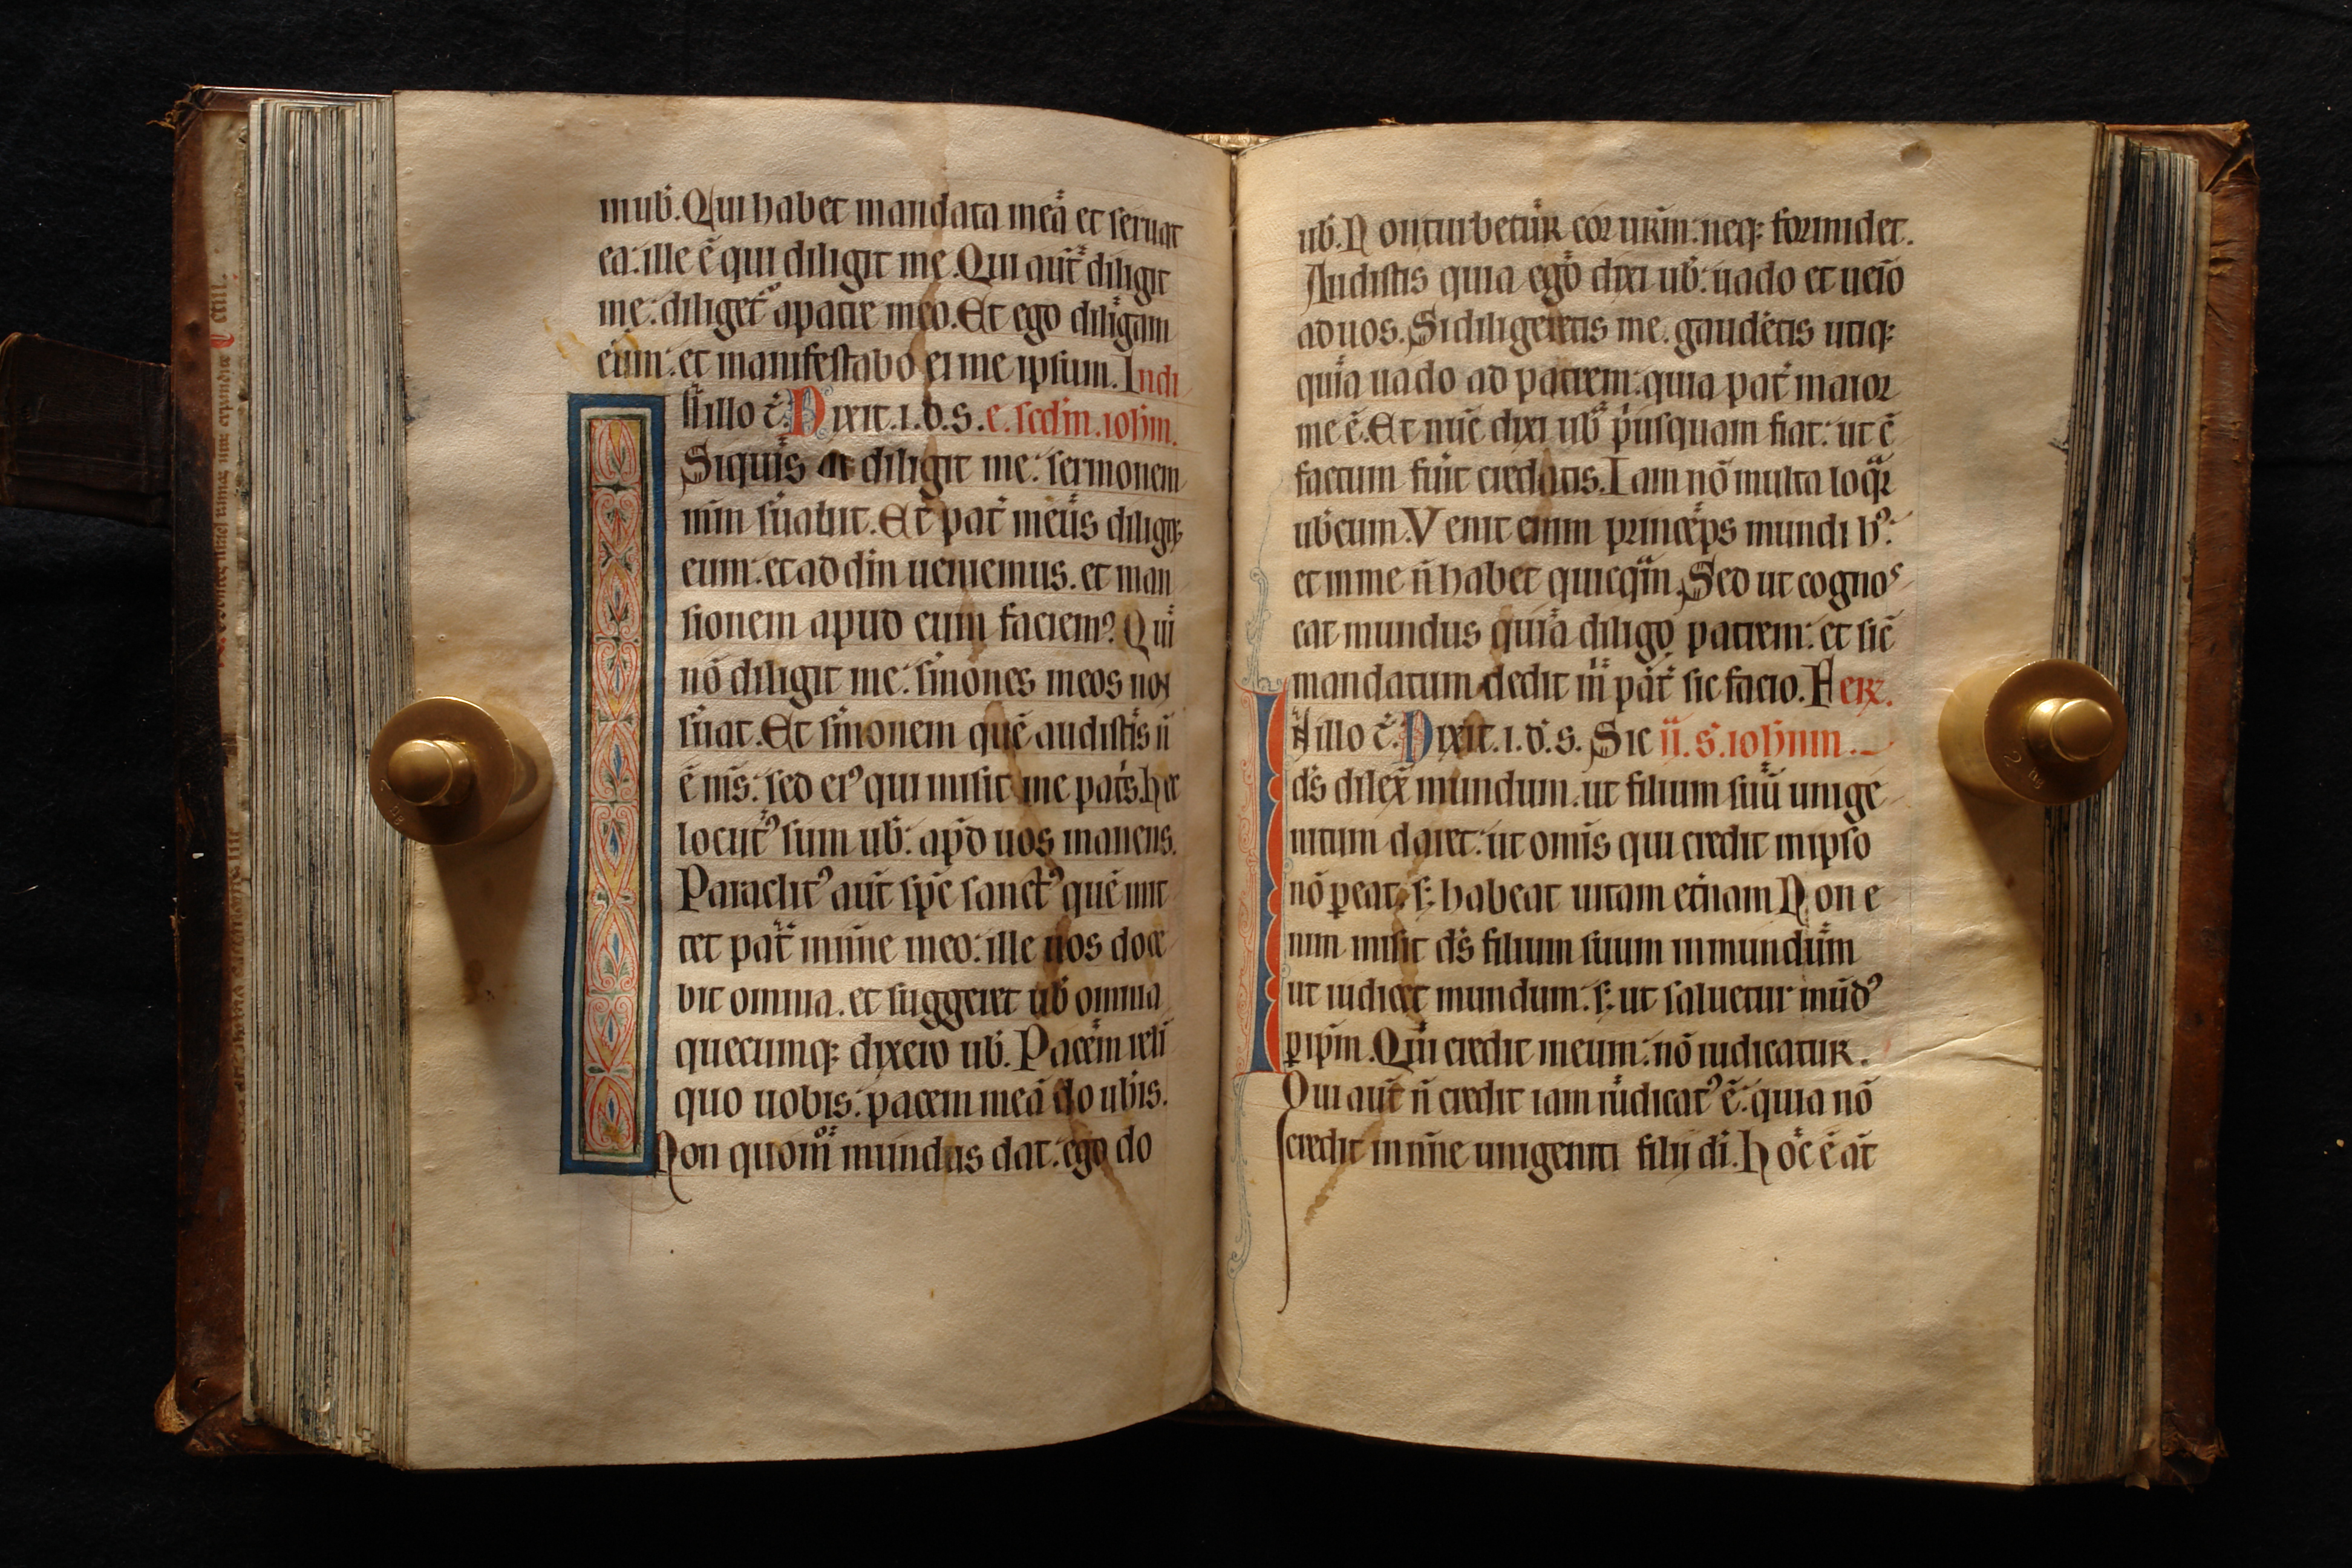 mub̃. Qui habet mandata meã et seruat
ea: ille ẽ qui diligit me. Qui aut̃ diligit
me: diliget̃ apatre meo. Et ego diligam
eum: et manifestabo ei me ipsum. In di
illo t̃. Dixit .i. d. s. e. scd̃m. ioh̃m.
Siquis diligit me: sermonem
mũm s̃uabit. Et pat̃ meus diligꝫ
eum: et ad ũm ueniemus. et man
sionem apud eum faciemꝰ. Qui
nõ diligit me: s̃mones meos non
s̃uat. Et s̃monem quẽ audistis ñ
ẽ m̃s: sed eiꝰ qui misit me pat̃s. hec
locut̃ꝰ sum ub̃: ap̃d uos manens.
Paraclit̃ꝰ aut̃ sp̃c sanct̃ꝰ quẽ mit
tet pat̃ in nõıe meo: ille uos doce
bit omnia. et suggeret ub̃ omnia
quecumqꝫ dixero ub̃. Pacem reli
quo uobis: pacem meã do ub̃is.
Non quom̃ mundus dat: ego do
ub̃. Non turbetur cor ur̃m: neqꝫ formidet.
Audistis quia ego dixi ub̃: uado et ueĩo
ad uos. Si diligeretis me. gaud̃etis utiqꝫ
quia uado ad patrem: quia pat̃ maior
me ẽ. Et nũc dixi ub̃ p̃usquam fiat: ut c̃
factum fũit credatis. Iam nõ multa loq̃r
ub̃cum. Venit enim princeps mundi hꝰ:
et in me ñ habet quicq̃m. Sed ut cognos
cat mundus quia diligo patrem: et sic̃
mandatum dedit m̃ pat̃ sic facio. Fer.
illo t̃. Dixit .i. d. s. Sic ii. s. ioh̃nm.
d̃s dilex̃ mundum. ut filium suũ unige
nitum daret: ut om̃is qui credit in ipso
nõ ꝑeat. s: habeat uitam et̃nam. Non e
nim misit d̃s filium suum in mundum
ut iudicet mundum: s: ut saluetur mũdꝰ
ꝑ ip̃m. Qui credit in eum: nõ iudicatur.
Qui aut̃ ñ credit iam iudicat̃ꝰ ẽ: quia nõ
credit in nõıe unigeniti filij di. Hoc ẽ at̃